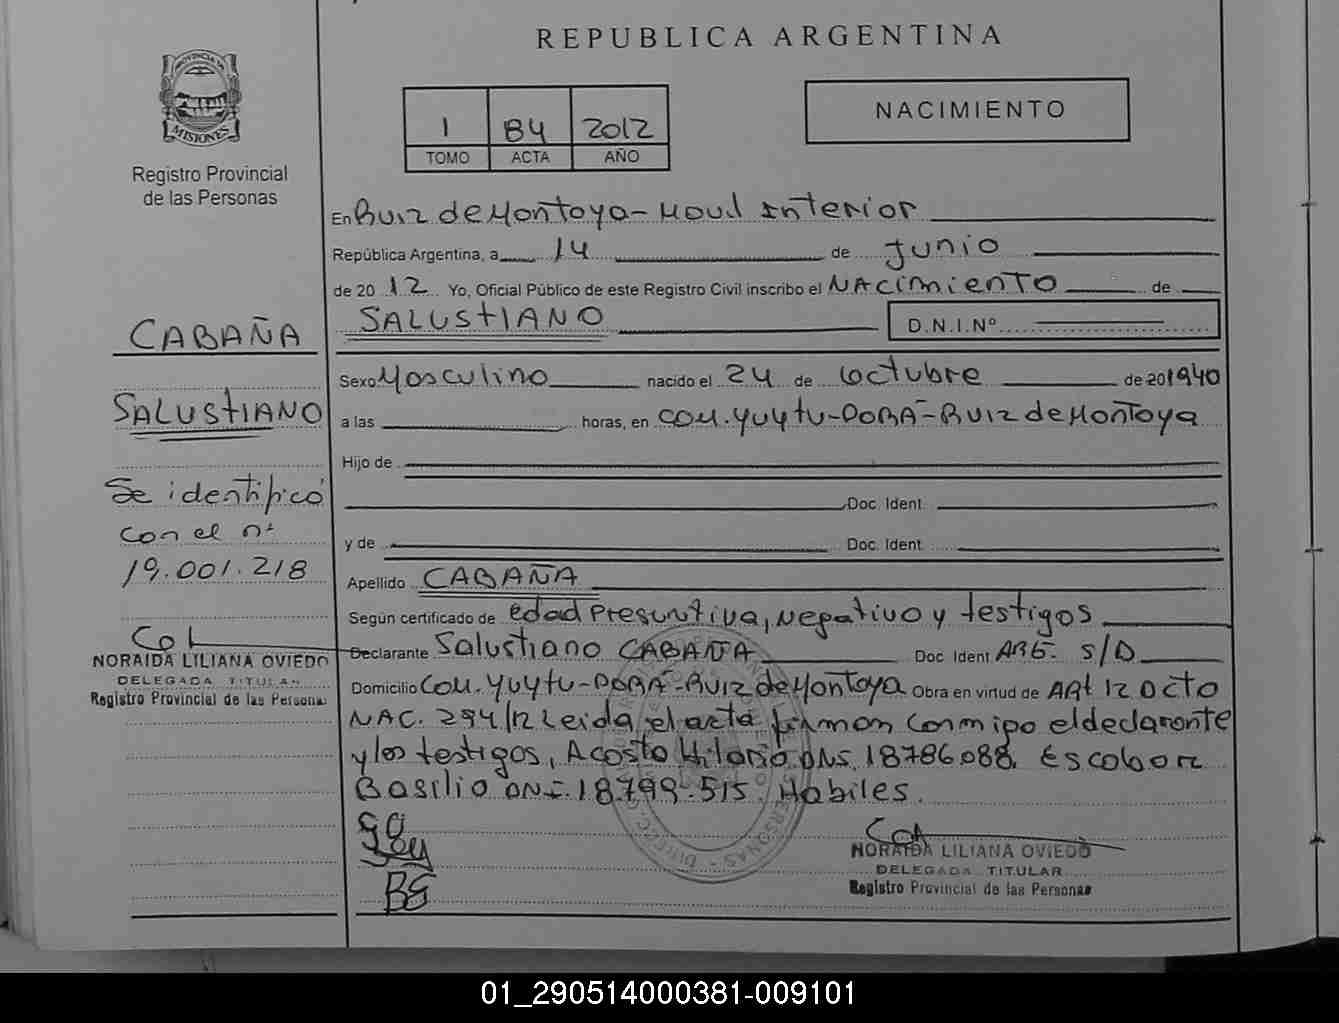 REPUBLICA ARGENTINA
PROVINCIA DE
MISIONES
Registro Provincial
de las Personas
1 84 2012
TOMO ACTA AÑO
NACIMIENTO
En Ruiz de Montoya - Movil Interior
República Argentina, a 14 de Junio
de 20 12 Yo, Oficial Público de este Registro Civil inscribo el NACimiento de
SALUStIANO D.N.I.Nº
CABAÑA
SALUStIANO
Se identificó
con el nº
19.001.218
NORAIDA LILIANA OVIEDO
DELEGADA TITULAR
Registro Provincial de las Persona
Sexo Masculino nacido el 24 de octubre de 20 1940
a las horas, en Com. Yuytu-PORÃ-Ruiz de Montoya
Hijo de
Doc. Ident.
y de Doc. Ident.
Apellido CABAÑA
Según certificado de edad Presuntiva, Negativo y testigos
Declarante Salustiano CABAÑA Doc Ident ARG. S/D
Domicilio Com. Yuytu-PORÃ-Ruiz de Montoya Obra en virtud de ARt 12 Dcto
NAC. 294/12 Leida el acta firman conmigo el declarante
y los testigos, Acosta Hilario DNI. 18786088. Escobar
Basilio DNI. 18.799.515. Habiles.
BE
NORAIDA LILIANA OVIEDO
DELEGADA TITULAR
Registro Provincial de las Personas
01_290514000381-009101